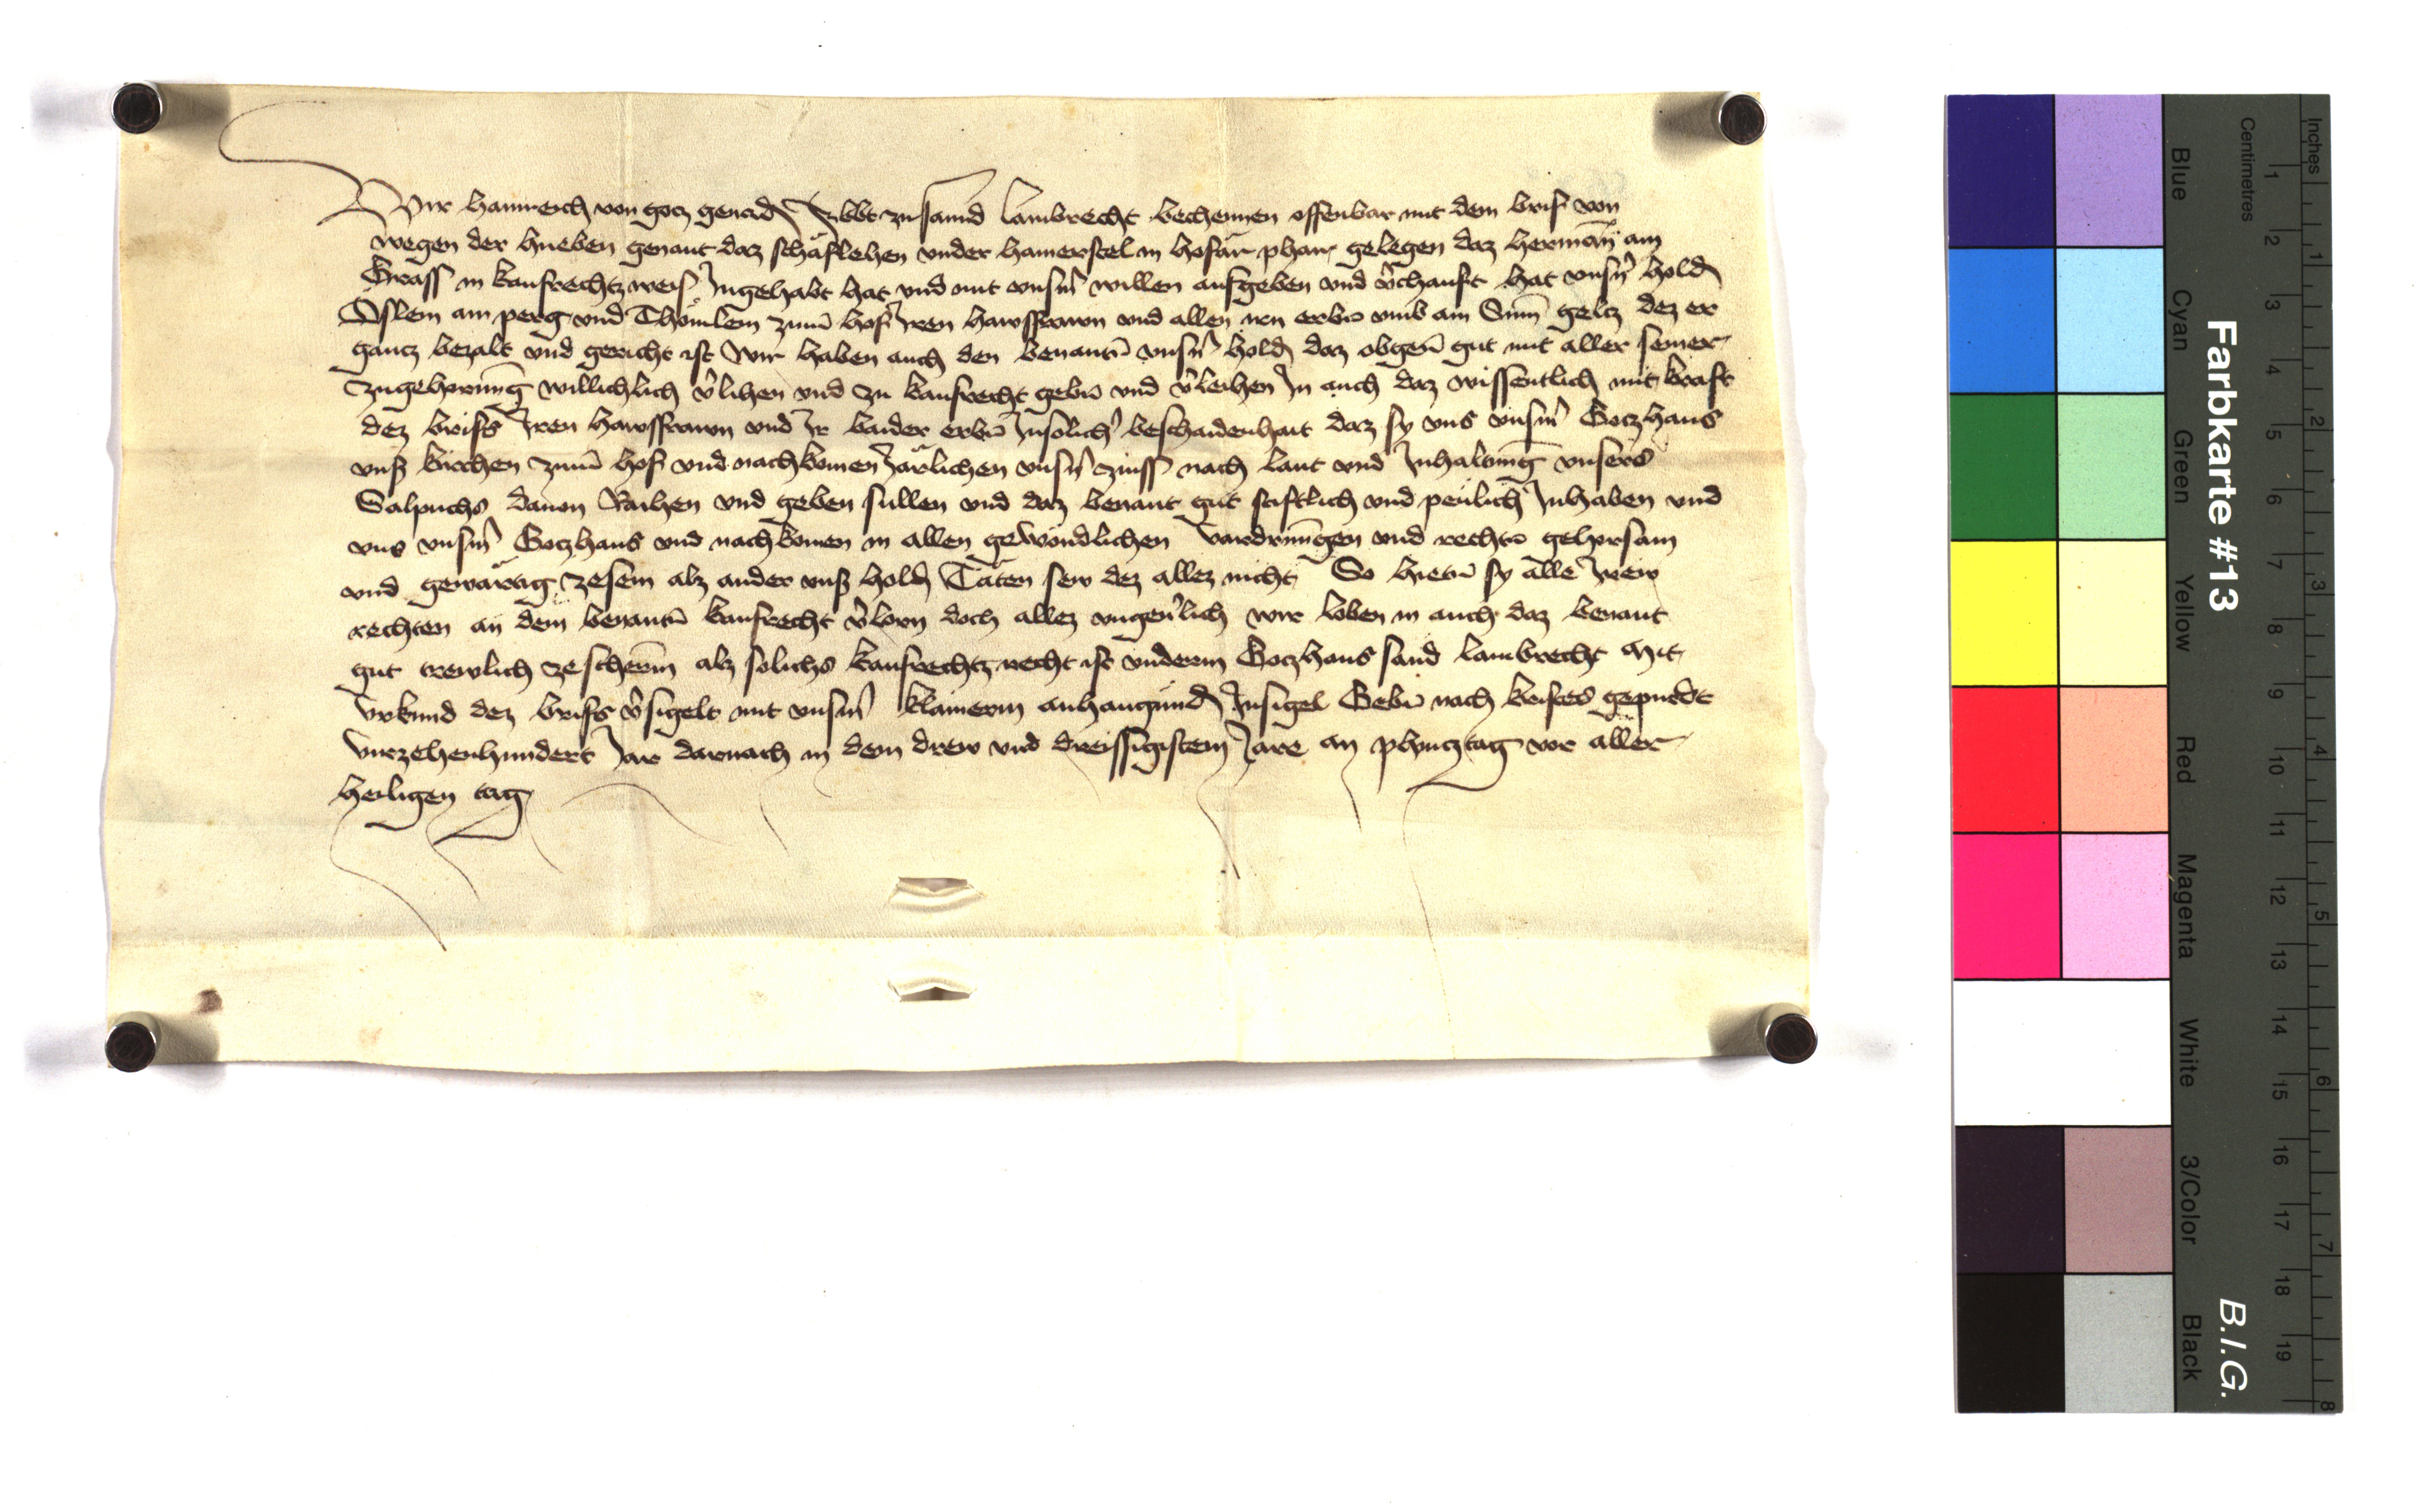 Wir Hainreich von gotz genad Abbt zu sannd Lambrecht bechennen offenbar mit dem brif von
wegen der hueben genant daz schäflehen vnder hamerstel in hofär pharr gelegen daz Herman am
Grass in kaufrechtz weis Ingehabt hat vnd mit vnsm willen aufgeben vnd vchauft hat vnsn hold
Oslein am perg vnd Thömlein zum hof Iren hawsfrawn vnd allen irn erbn vmb ain Sum geltz dez er
gantz bezalt vnd gericht ist Wir haben auch den benantn vnsn hold daz obgen gut mit aller seiner
zugehorung willichlich vlihen vnd zu kaufrecht gebn vnd vleihen In auch daz wissentlich mit kraft
dez brifs Iren hawsfrawn vnd Ir baider erbn Insolich beschaidenhait daz sy vns vnsm Gotzhaus
vnß kirchen zum hof vnd nachkomen Järlichen vnsn zinss nach laut vnd Inhaltung vnsers
Salpuchs dauon Raihen vnd geben sullen vnd daz benant gut stiftlich vnd peulich Inhaben vnd
vns vnsm Gotzhaus vnd nachkomen in allen gewöndlichen vardrungen vnd rechtn gehorsam
vnd gewärtig zesein alz ander vnß hold Täten sew dez allez nicht So hietn sy alle Irew
rechten an dem benantn kaufrecht vlorn doch allez vngeulich wir loben in auch daz benant
gut trewlich zescherm alz solichs kaufrechtz recht ist vnderm Gotzhaus sand Lambrecht Mit
vrkund dez brifs vsigelt mit vnsm klainerm anhangund Insigel Gebn nach kristes gepurdt
virzehenhundert Jar darnach in dem drew vnd dreissigistem Jare an phintztag vor aller
heiligen tag
Farbkarte #13
B.I.G.
Inches
Centimetres
Blue
Cyan
Green
Yellow
Red
Magenta
White
3/Color
Black
1 2 3 4 5 6 7 8 9 10 11 12 13 14 15 16 17 18 19
1 2 3 4 5 6 7 8